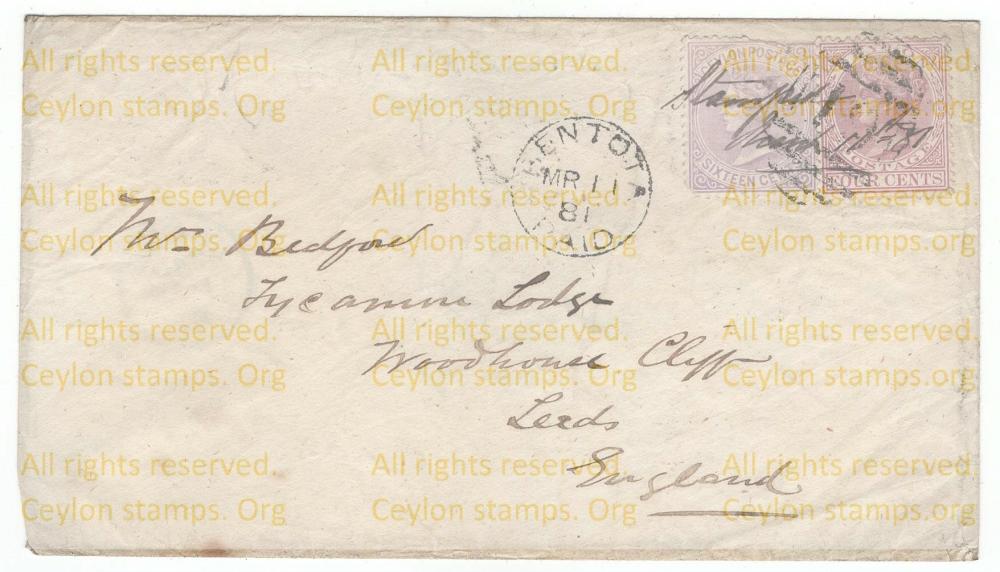 All rights reserved.
Ceylon stamps. Org
All rights reserved.
Ceylon stamps. Org
All rights reserved.
Ceylon stamps. org
POST
SIXTEEN CE
POSTAGE
FOUR CENTS
BENTOTA
MR 11
81
PAID
Mrs Bedford
Sycamore Lodge
Woodhouse Cliff
Leeds
England
All rights reserved.
Ceylon stamps. Org
All rights reserved.
Ceylon stamps. Org
All rights reserved.
Ceylon stamps. org
All rights reserved.
Ceylon stamps. Org
All rights reserved.
Ceylon stamps. Org
All rights reserved.
Ceylon stamps. org
All rights reserved.
Ceylon stamps. Org
All rights reserved.
Ceylon stamps. Org
All rights reserved.
Ceylon stamps. org